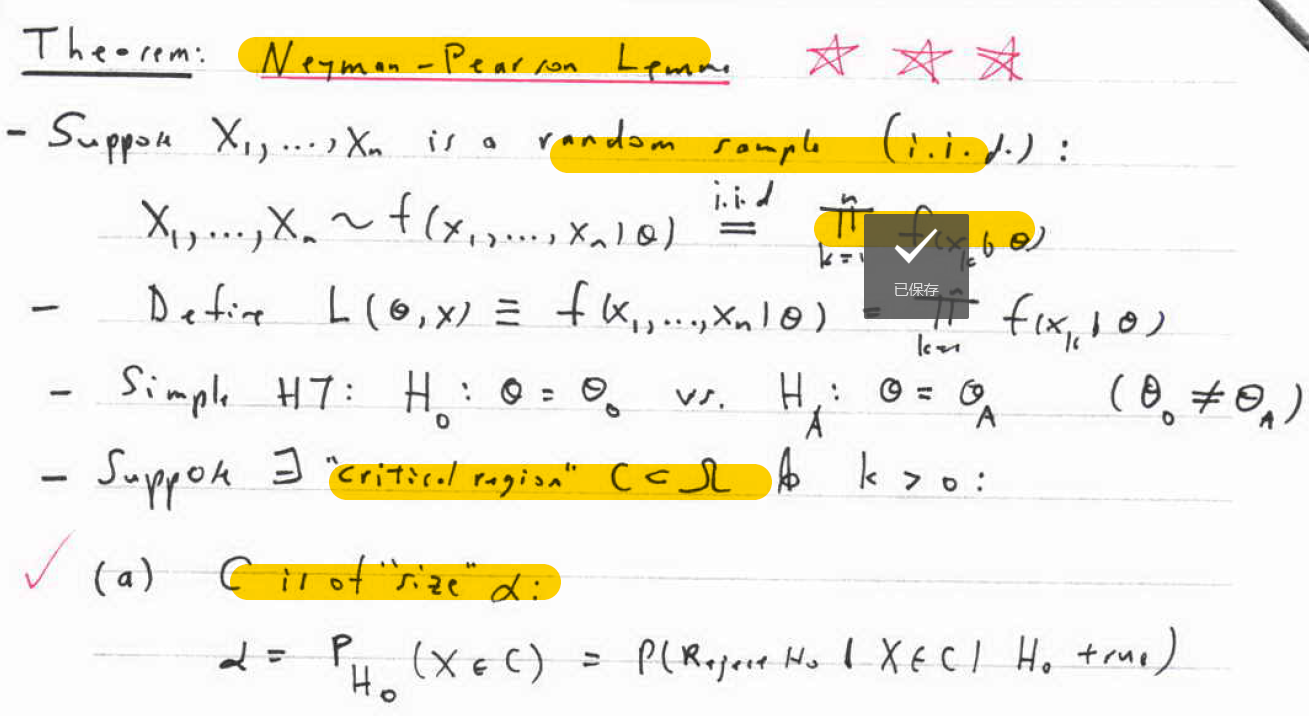 Theorem: Neyman-Pearson Lemma
- Suppose X₁,...,Xₙ is a random sample (i.i.d.):
X₁,...,Xₙ ~ f(x₁,...,xₙ|θ) i.i.d = ∏ⁿ k=1 f(xₖ|θ)
已保存
- Define L(θ,x) ≡ f(x₁,...,xₙ|θ) = ∏ⁿ k=1 f(xₖ|θ)
- Simple HT: H₀: θ = θ₀ vs. H_A: θ = θ_A (θ₀ ≠ θ_A)
- Suppose ∃ "critical region" C ⊂ Ω & k > 0:
✓ (a) C is of "size" α:
α = P_H₀ (X ∈ C) = P(Reject H₀ | X ∈ C | H₀ true)